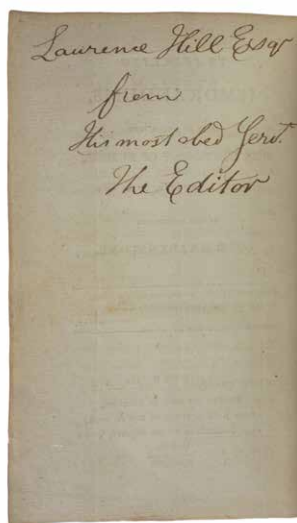 Laurence Hill Esqr
from
His most obed Servt.
The Editor